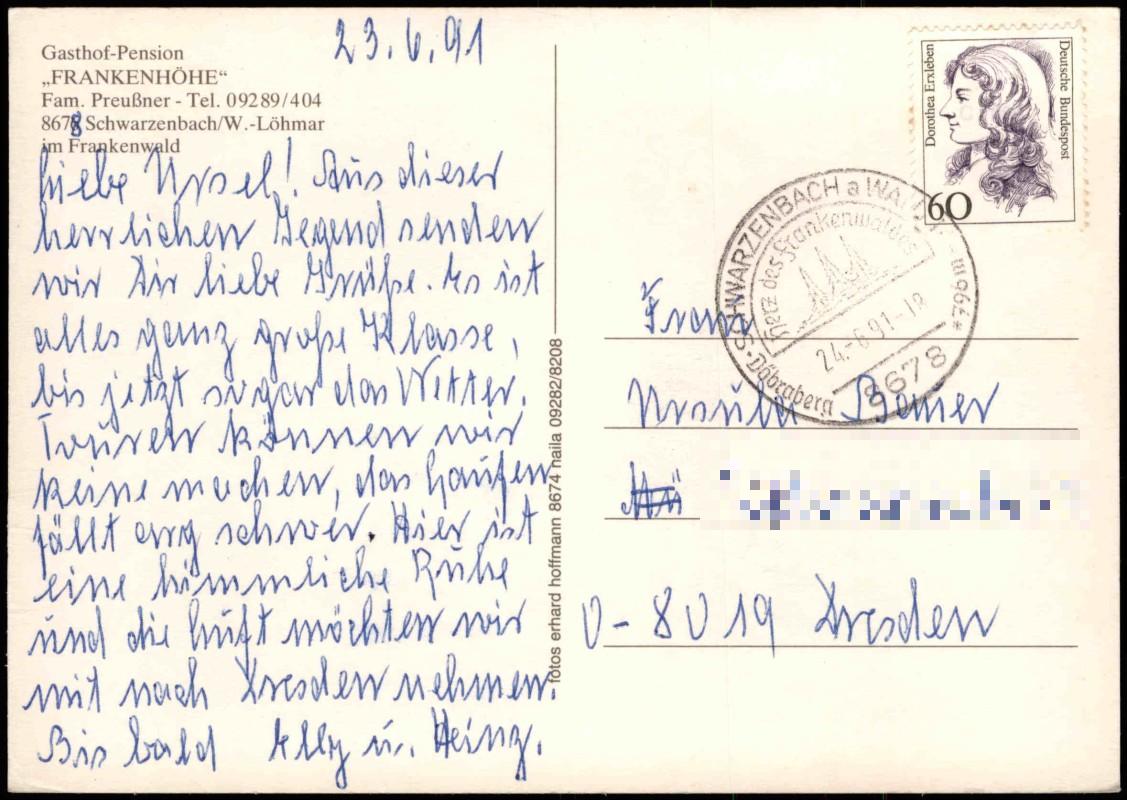 23.6.91
Gasthof-Pension
„FRANKENHÖHE“
Fam. Preußner - Tel. 09289/404
8678 Schwarzenbach/W.-Löhmar
im Frankenwald
Liebe Ursel! Aus dieser
herrlichen Gegend senden
wir Dir liebe Grüße. Es ist
alles ganz große Klasse,
bis jetzt sogar das Wetter.
Touren können wir
keine machen, das Laufen
fällt arg schwer. Hier ist
eine himmliche Ruhe
und die Luft möchten wir
mit nach Dresden nehmen.
Bis bald Elly u. Heinz.
fotos erhard hoffmann 8674 naila 09282/8208
Dorothea Erxleben
Deutsche Bundespost
60
SCHWARZENBACH a WALD
Herz des Frankenwaldes
24.-6.91-18
8678
Döbraberg
796 m
Frau
Ursula
Mü
O-8019 Dresden